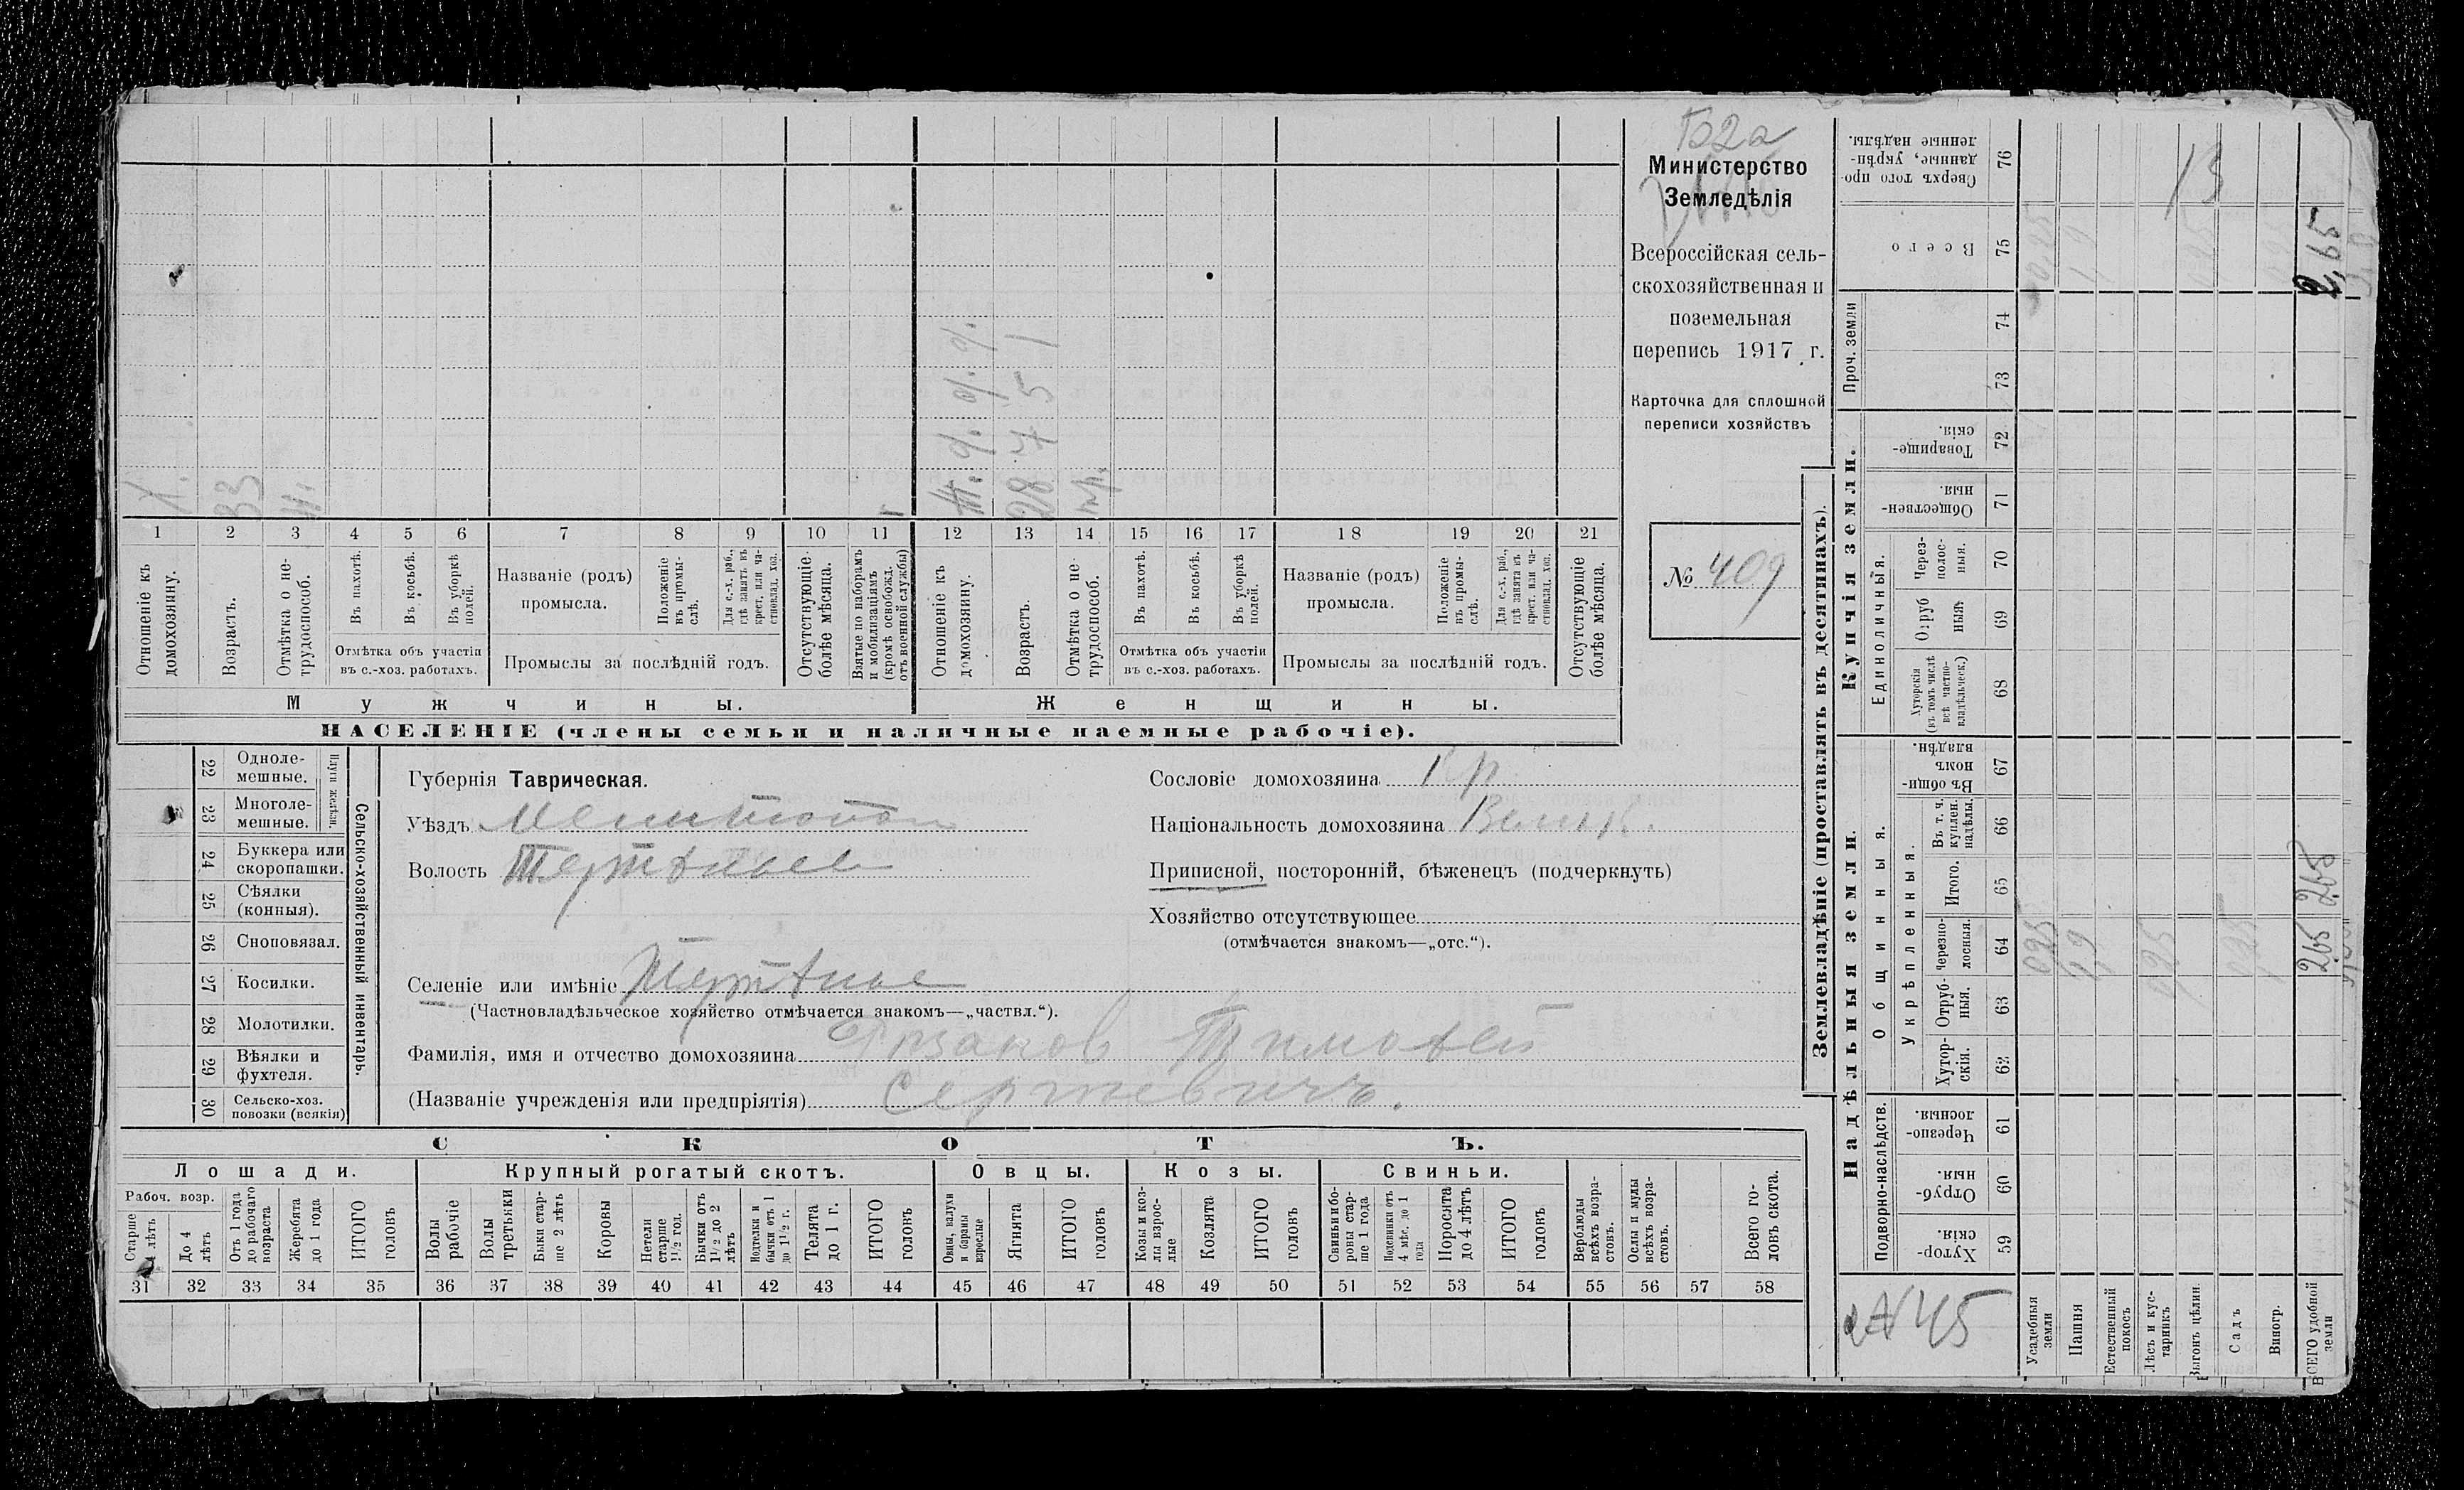 Б2а
Министерство
Земледѣлія
Всероссійская сель-
скохозяйственная и
поземельная
перепись 1917 г.
Карточка для сплошной
переписи хозяйствъ
№ 409
Х.
33
Ж. д. д. д.
28 7 5 1
1 2 3 4 5 6 7 8 9 10 11 12 13 14 15 16 17 18 19 20 21
Отношеніе къ домохозяину.
Возрастъ.
Отмѣтка о не-трудоспособ.
Въ пахотѣ.
Въ косьбѣ.
Въ уборкѣ полей.
Отмѣтка объ участіи
въ с.-хоз. работахъ.
Названіе (родъ)
промысла.
Положеніе въ промы-слѣ.
Для с.-х. раб., гдѣ занятъ въ крест. или ча-стновлад. хоз.
Промыслы за послѣдній годъ.
Отсутствующіе болѣе мѣсяца.
Взятые по наборамъ и мобилизаціямъ (кромѣ освобожд. отъ военной службы)
Отношеніе къ домохозяину.
Возрастъ.
Отмѣтка о не-трудоспособ.
Въ пахотѣ.
Въ косьбѣ.
Въ уборкѣ полей.
Отмѣтка объ участіи
въ с.-хоз. работахъ.
Названіе (родъ)
промысла.
Положеніе въ промы-слѣ.
Для с.-х. раб., гдѣ занята въ крест. или ча-стновлад. хоз.
Промыслы за послѣдній годъ.
Отсутствующіе болѣе мѣсяца.
Мужчины.
Женщины.
НАСЕЛЕНІЕ (члены семьи и наличные наемные рабочіе).
22 Одноле-мешные.
23 Многоле-мешные.
Плуги желѣзн.
24 Буккера или скоропашки.
25 Сѣялки (конныя).
26 Сноповязал.
27 Косилки.
28 Молотилки.
29 Вѣялки и фухтеля.
30 Сельско-хоз. повозки (всякія)
Сельско-хозяйственный инвентарь.
Губернія Таврическая.
Уѣздъ Мелитопол
Волость Терпѣньев
Селеніе или имѣніе Терпѣнье
(Частновладѣльческое хозяйство отмѣчается знакомъ—„частвл.“).
Фамилія, имя и отчество домохозяина Тимофей
(Названіе учрежденія или предпріятія) Сергѣевичъ.
Сословіе домохозяина Кр
Національность домохозяина Велик.
Приписной, посторонній, бѣженецъ (подчеркнуть)
Хозяйство отсутствующее
(отмѣчается знакомъ—„отс.“).
СКОТЪ.
Лошади.
Крупный рогатый скотъ.
Овцы.
Козы.
Свиньи.
Рабоч. возр.
Старше 4 лѣтъ
До 4 лѣтъ
Отъ 1 года до рабочаго возраста
Жеребята до 1 года
ИТОГО головъ
Волы рабочіе
Волы третьяки
Быки стар-ше 2 лѣтъ
Коровы
Нетели старше 1½ год.
Бычки отъ 1½ до 2 лѣтъ
Подтелки и бычки отъ 1 до 1½ г.
Телята до 1 г.
ИТОГО головъ
Овцы, валухи и бараны взрослые
Ягнята
ИТОГО головъ
Козы и коз-лы взрос-лые
Козлята
ИТОГО головъ
Свиньи и бо-ровы стар-ше 1 года
Подсвинки отъ 4 мѣс. до 1 года
Поросята до 4 лѣтъ
ИТОГО головъ
Верблюды всѣхъ возра-стовъ.
Ослы и мулы всѣхъ возра-стовъ.
Всего го-ловъ скота.
31 32 33 34 35 36 37 38 39 40 41 42 43 44 45 46 47 48 49 50 51 52 53 54 55 56 57 58
Землевладѣніе (проставлять въ десятинахъ).
Сверхъ того про-данные, укрѣп-ленные надѣлы. 76
Всего 75
Проч. земли 74
73
Купчія земли.
Товарище-скія. 72
Обществен-ныя. 71
Единоличныя.
Через-полос-ныя. 70
Отруб ныя 69
Хуторскія (въ томъ числѣ всѣ частно-владѣльческ.) 68
Надѣльныя земли.
Общинныя.
Въ общи-номъ владѣн. 67
Укрѣпленныя.
Въ т. ч. куплен. надѣлы. 66
Итого. 65
Черезпо-лосныя. 64
Отруб-ныя. 63
Хутор-скія. 62
Подворно-наслѣдств.
Черезпо-лосныя. 61
Отруб-ныя. 60
Хутор-скія. 59
Усадебныя земли
Пашня
Естественный покосъ
Лѣсъ и кус-тарникъ
Выгонъ цѣлин.
Садъ
Виногр.
ВСЕГО удобной земли
13
2,65
265 265
45